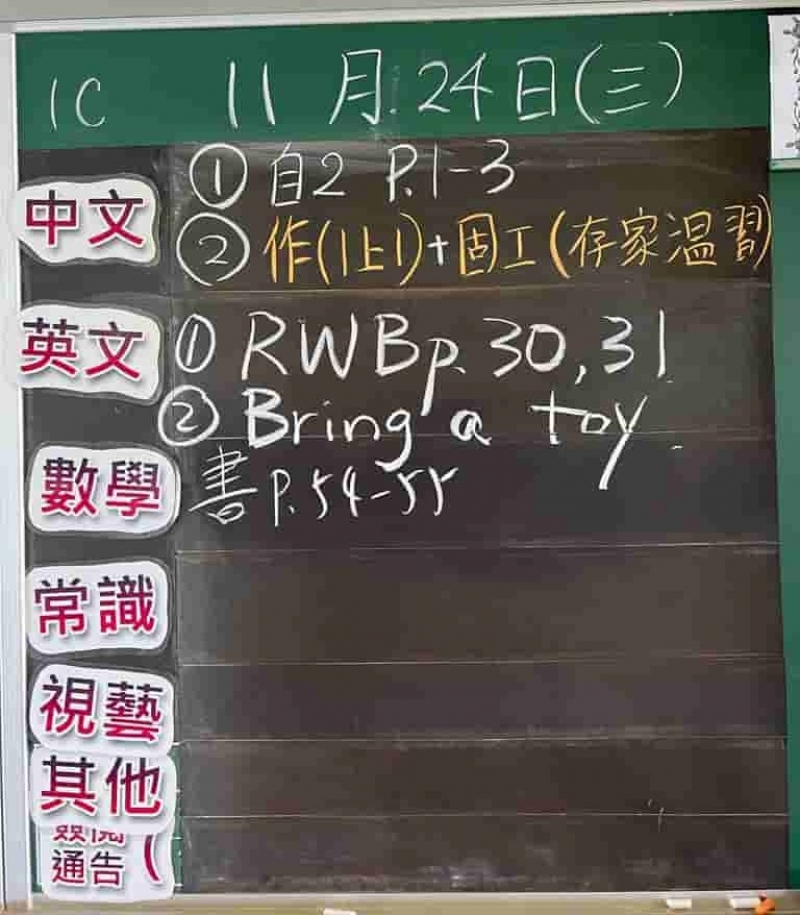 1C 11月24日(三)
中文 ① 自2 P.1-3
② 作(1上1)+固工(存家溫習)
英文 ① RWB p. 30, 31
② Bring a toy.
數學 書 P.54-55
常識
視藝
其他
簽閱
通告 (